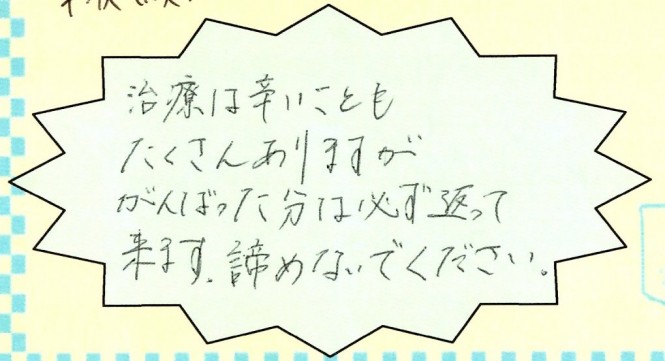 治療は辛いことも
たくさんありますが
がんばった分は必ず返って
来ます。諦めないでください。